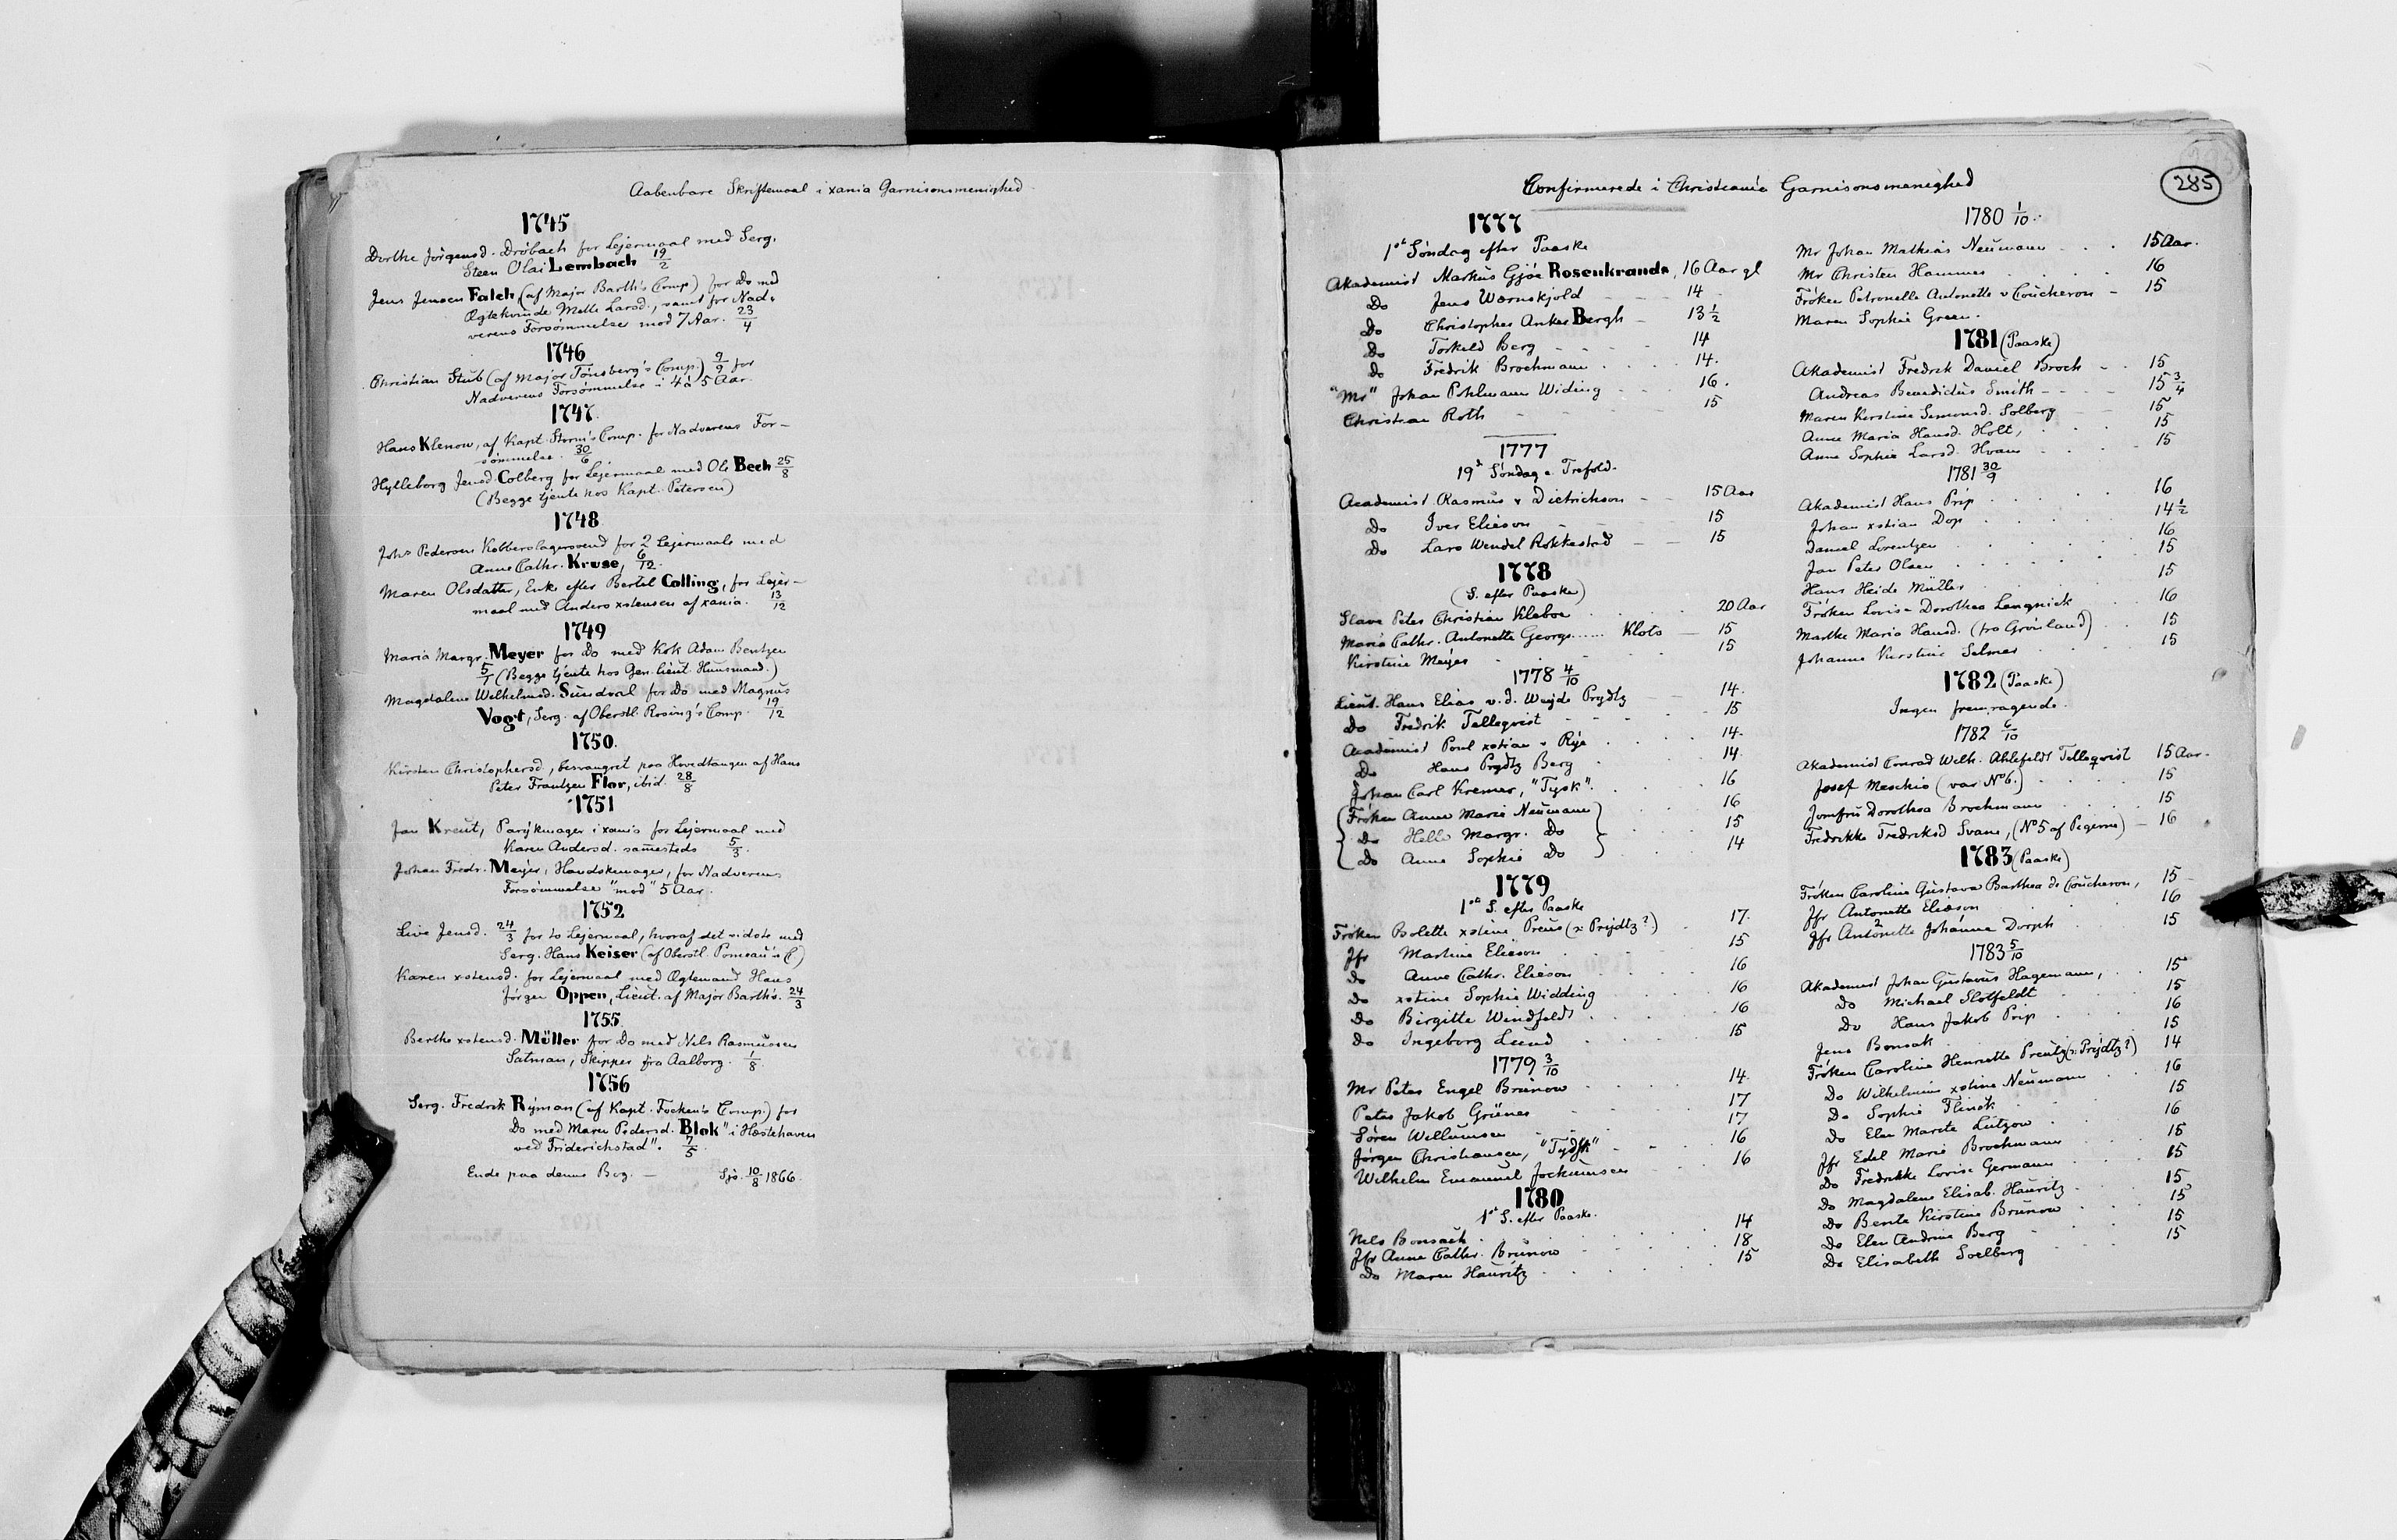 Aabenbare Skriftemaal i xania Garnisonsmenighed
1745
Dorthe Jørgensd. Drøbach for Lejermaal med Serg.
Steen Olai Lembach 19/2
Jens Jensen Falch (af Major Barth's Comp) for Do med
Ægtekvinde Mette Larsd., samt for Nad-
verens Forsømmelse mod 7 Aar. 23/4
1746
Christian Stub (af Major Tønsberg's Comp.) 9/9 for
Nadverens Forsømmelse i 4 à 5 Aar.
1747.
Hans Klenow, af Kapt. Storm's Comp. for Nadverens For-
sømmelse. 30/6
Hylleborg Jensd. Colberg for Lejermaal med Ole Bech 25/8
(Begge tjente hos Kapt. Petersen)
1748
Johs Pedersen Kobberslagersvend for 2 Lejermaale med
Anne Cathr. Kruse, 6/12.
Maren Olsdatter, Enke efter Bertel Colling, for Lejer-
maal med Anders xstensen af xania. 13/12
1749
Maria Margr. Meyer for Do med Kok Adam Bentzen
5/1 (Begge tjente hos Gen. lieut. Huusmand.)
Magdalene Wilhelmsd. Sundval for Do med Magnus
Vogt, Serg. af Oberstl. Rosing's Comp. 19/12
1750.
Kirsten Christophersd., besvangret paa Hovedtangen af Hans
Peter Frantzen Flor, ibid. 28/8
1751
Jan Kreut, Parykmager i xania for Lejermaal med
Karen Andersd. sammesteds 5/3.
Johan Fredr. Meyer, Handskemager, for Nadverens
Forsømmelse "mod" 5 Aar.
1752
Live Jensd. 24/3 for to Lejermaal, hvoraf det sidste med
Serg. Hans Keiser (af Oberstl. Pomeau's C)
Karen xstensd. for Lejermaal med Ægtemand Hans
Jørgen Oppen, Lieut. af Major Barth's. 24/3
1755
Berthe xstensd. Müller for Do med Nils Rasmussen
Satman, Skipper fra Aalborg. 1/8.
1756
Serg. Fredrik Ryman (af Kapt. Focken's Comp.) for
Do med Maren Pedersd. Blok "i Hæstehaven
ved Friderichstad". 7/5
Ende paa denne Bog. — Sjs. 10/8 1866.
285
Confirmerede i Christiania Garnisonsmenighed
1777
1ste Søndag efter Paaske
Akademist Markus Gjøe Rosenkrands, 16 Aar gl
Do Jens Wærnskjold 14
Do Christopher Anker Bergh 13 1/2
Do Torkild Berg 14
Do Fredrik Brochmann 14.
"Mr" Johan Pohlmann Widing 16.
Christian Roth 15
1777
19de Søndag e. Trefold.
Academist Rasmus v Dietrichson 15 Aar
Do Iver Elieson 15
Do Lars Wendel Rokkestad 15
1778
(S. efter Paaske)
Slave Peter Christian Kleboe 20 Aar
Maria Cathr. Antonette Georgs...... Kloto 15
Kirstine Meyer 15
1778 4/10
Lieut. Hans Elias v. d. Weyde Prydtz 14.
Do Fredrik Telleqvist 15
Academist Poul xstian v Rye 14.
Do Hans Prydtz Berg 14.
Johan Carl Kremer, "Tysk". 16
Frøken Anne Marie Neumann 16
Do Helle Margr. Do 15
Do Anne Sophie Do 14
1779
1ste S. efter Paaske
Frøken Bolette xstine Preus (ɔ: Prydtz?) 17.
Jfr Martine Elieson 15
Do Anne Cathr. Elieson 16
Do xstine Sophie Widding 16
Do Birgitte Windfeldt 16
Do Ingeborg Lund 15
1779 3/10
Mr Peter Engel Brunow 14.
Peter Jakob Grüner 17
Søren Willumsen 17
Jørgen Christiansen, "Tydsk" 16
Wilhelm Emanuel Jochumsen 16
1780
1ste S. efter Paaske.
Nils Bonsach 14
Jfr Anne Cathr. Brunow 18
Do Maren Hauritz 15
1780 1/10.
Mr Johan Mathias Neumann 15 Aar.
Mr Christen Hammer 16
Frøken Petronelle Antonette v Coucheron 15
Maren Sophie Green.
1781 (Paaske)
Akademist Fredrik Daniel Broch 15
Andreas Benedictus Smith 15 3/4
Maren Kirstine Simonsd. Solberg 15
Anne Maria Hansd. Holt, 15
Anne Sophie Larsd. Hvam 15
1781 30/9
Akademist Hans Prip 16
Johan xstian Dop 14 1/2
Daniel Lorentzen 16
Jan Peter Olsen 15
Hans Heide Müller 15
Frøken Lovise Dorothea Langnick 16
Marthe Maria Hansd. (fra Grønland) 15
Johanne Kirstine Selmer 15
1782 (Paaske)
Ingen fremragende.
1782 6/10
Akademist Conrad Wilh. Ahlefeldt Telleqvist 15 Aar.
Josef Meschio (var No 6.) 15
Jomfru Dorothea Brochmann 15
Fredrikke Fredriksd Svane, (No 5 af Pigerne) 16
1783 (Paaske)
Frøken Caroline Gustava Barthea de Coucheron, 15
Jfr Antonette Elieson 16
Jfr Antonette Johanna Dorph 15
1783 5/10
Akademist Johan Gustavus Hagemann, 15
Do Michael Slotfeldt 15
Do Hans Jakob Prip 16
Jens Bonsak 15
Frøken Caroline Henriette Preutz (ɔ: Prydtz?) 14
Do Wilhelmine xstine Neumann 16
Do Sophie Flinck 15
Do Elen Marete Lützow 16
Jfr Edel Marie Brochmann 15
Do Fredrikke Lovise Germann 15
Do Magdalene Elisab. Hauritz 15
Do Bente Kirstine Brunow 15
Do Elen Andrine Berg 15
Do Elisabeth Soelberg 15